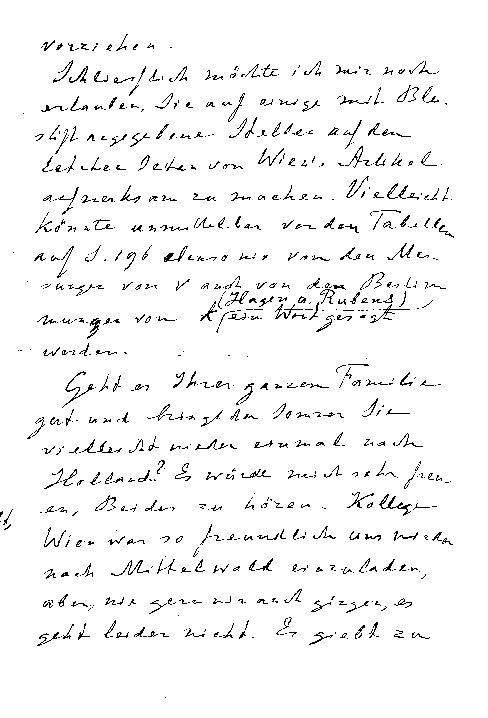 vorziehen.
Schliesslich möchte ich mir noch
erlauben, Sie auf einige mit Blei-
stift angegebene Stellen auf den
letzten Seiten von Wien's Artikel
aufmerksam zu machen. Vielleicht
könnte unmittelbar vor den Tabellen
auf S. 196 ebenso wie von den Mes-
sungen von V auch von den Bestim
mungen von k (Hagen u. Rubens) ein Wort gesagt
werden.
Geht es Ihrer ganzen Familie
gut und bringt der Sommer Sie
vielleicht wieder einmal nach
Holland? Es würde mich sehr freu-
en, Beides zu hören. Kollege
Wien war so freundlich uns wieder
nach Mittelwald einzuladen,
aber, wie gern wir auch gingen, es
geht leider nicht. Es giebt zu